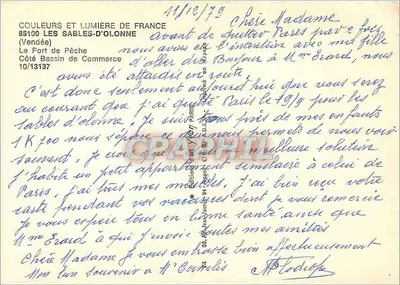 11/12/79
COULEURS ET LUMIÈRE DE FRANCE
85100 LES SABLES-D'OLONNE
(Vendée)
Le Port de Pêche
Côté Bassin de Commerce
10/13137
Chère Madame
avant de quitter Paris par 2 fois
nous avions eu l'intention avec ma fille
d'aller dire Bonjour à Mme Erard, nous
avons été attardés en route
C'est donc seulement aujourd'hui que vous serez
au courant que j'ai quitté Paris le 19/9 pour les
Sables d'olonne, je suis tous près de mes enfants
1 K 500 nous sépare ce qui nous permets de nous voir
souvent, je crois que c'est la meilleure solution
J'habite un petit appartement similaire à celui de
Paris, j'ai tous mes meubles, j'ai bien reçu votre
carte pendant vos vacances dont je vous remercie
Je vous espère tous en bonne santé ainsi que
Mme Erard à qui j'envoie toutes mes amitiés
Chère Madame je vous embrasse bien affectueusement
Mon bon Souvenir à Mr
CPAPHIL